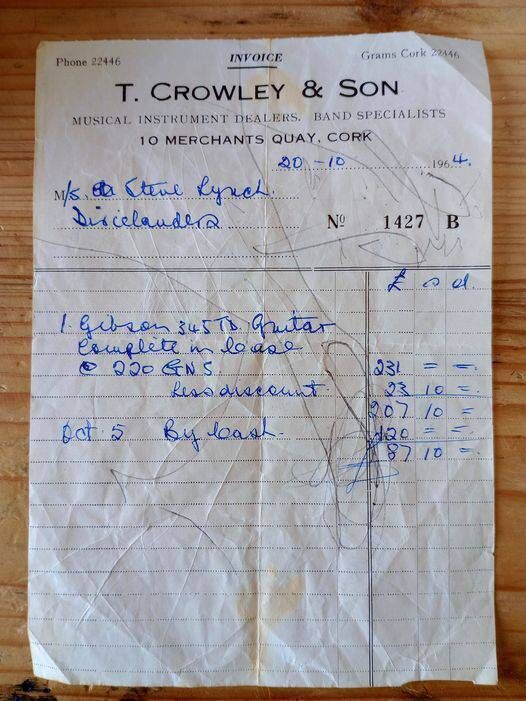 Phone 22446 INVOICE Grams Cork 22446
T. CROWLEY & SON
MUSICAL INSTRUMENT DEALERS. BAND SPECIALISTS
10 MERCHANTS QUAY, CORK
20 - 10 1964.
M/s. Steve Lynch.
Dixielanders Nº 1427 B
£ s d.
1 Gibson 345TD Guitar
Complete in Case
@ 220 GNS 231 = =
Less discount. 23 10 =.
207 10 =
Oct 5 By Cash. 120 = =
87 10 =